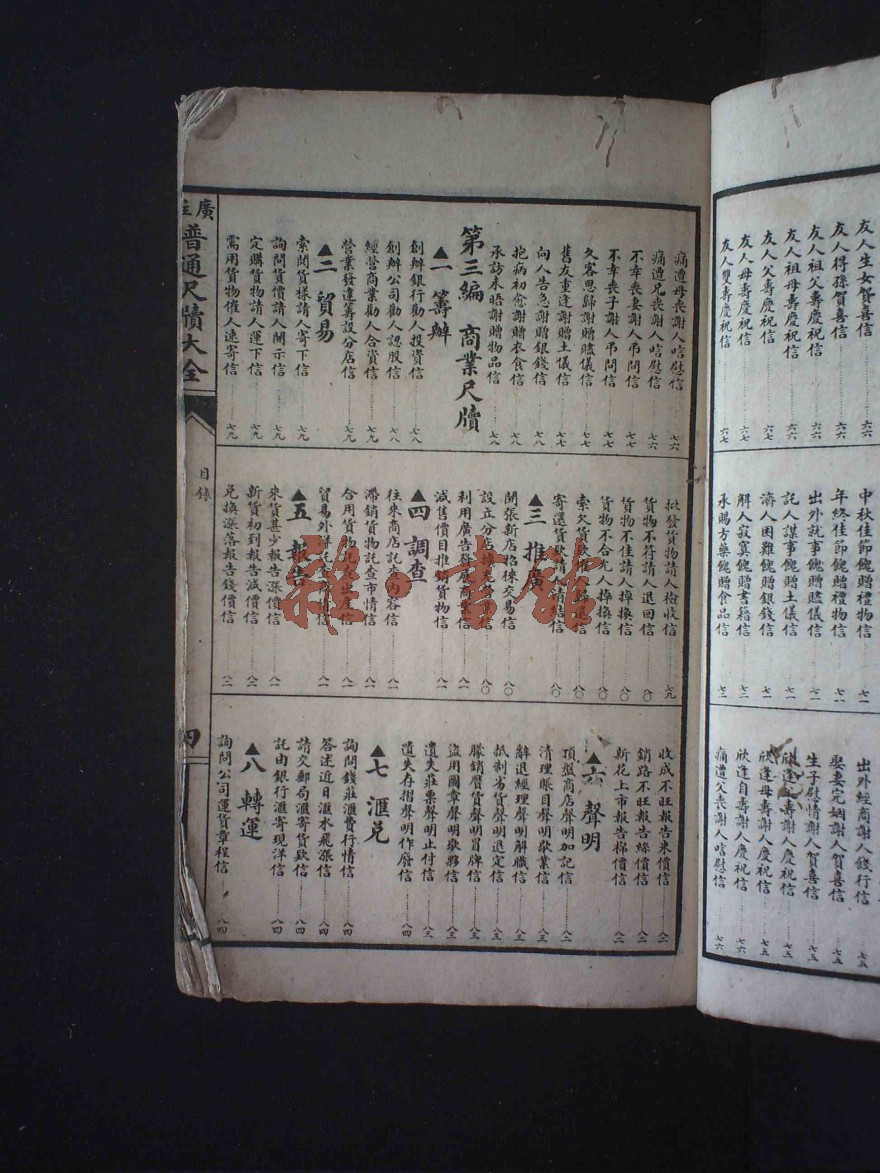 友人生女賀喜信 六六
友人得孫賀喜信 六六
友人祖父壽慶祝信 六六
友人祖母壽慶祝信 六六
友人父壽慶祝信 六六
友人母壽慶祝信 六六
友人雙壽慶祝信 六七
中秋佳節餽贈禮物信 七一
年終佳節餽贈禮物信 七一
出外就事餽贈贐儀信 七一
託人謀事餽贈土儀信 七一
濟人困難餽贈銀錢信 七一
解人寂寞餽贈書籍信 七一
承賜方藥餽贈食品信 七二
出外經商謝人餞行信 七五
娶妻完姻謝人賀喜信 七五
生子慰情謝人賀喜信 七五
欣逢父壽謝人慶祝信 七五
欣逢母壽謝人慶祝信 七五
欣逢自壽謝人慶祝信 七六
痛遭父喪謝人唁慰信 七六
痛遭母喪謝人唁慰信 七六
痛遭兄喪謝人唁慰信 七六
不幸喪妻謝人弔問信 七七
不幸喪子謝人弔問信 七七
久客思歸謝贈贐儀信 七七
舊友重逢謝贈土儀信 七七
向人告急謝贈銀錢信 七八
抱病初愈謝贈衣食信 七八
承訪未晤謝贈物品信 七八
第三編 商業尺牘
▲一 籌辦
創辦銀行勸人投資信 七八
創辦公司勸人認股信 七八
經營商業勸人合資信 七九
營業發達籌設分店信 七九
▲二 貿易
索閱貨樣請人寄下信 七九
詢問貨價請人開示信 七九
定購貨物請人運下信 七九
需用貨物催人速寄信 七九
批發貨物請人檢收信 七九
貨物不符請人退回信 八〇
貨物不佳請人掉換信 八〇
貨物不合允人掉換信 八〇
索欠貨款
寄還貨款請
▲三 推廣
開張新店招徠交易信 八〇
設立分店擴充營業信 八〇
利用廣告發展商業信 八一
減售價目推銷貨物信 八一
▲四 調查
往來商店託查內容信 八一
滯銷貨物託查市情信 八一
合用貨物
貿易外洋託查商情信 八一
▲五 報告
來貨甚少報告漲價信 八一
新貨初到報告減價信 八二
兌換漲落報告錢價信 八二
收成不旺報告米價信 八二
銷路不旺報告絲價信 八二
新花上市報告棉價信 八二
▲六 聲明
頂盤商店聲明加記信 八二
清理賬目聲明歇業信 八三
辭退經理聲明解職信 八三
抵制劣貨聲明退定信 八三
矇銷贋貨聲明冒牌信 八三
盜用圖章聲明歇夥信 八三
遺失莊票聲明止付信 八三
遺失存摺聲明作廢信 八四
▲七 滙兌
詢問錢莊滙費行情信 八四
答述近日滙水飛漲信 八四
請交郵局滙寄貨款信 八四
託由銀行滙寄現洋信 八四
▲八 轉運
詢問公司運貨章程信 八四
廣註
普通尺牘大全
目錄
四
雅·書館